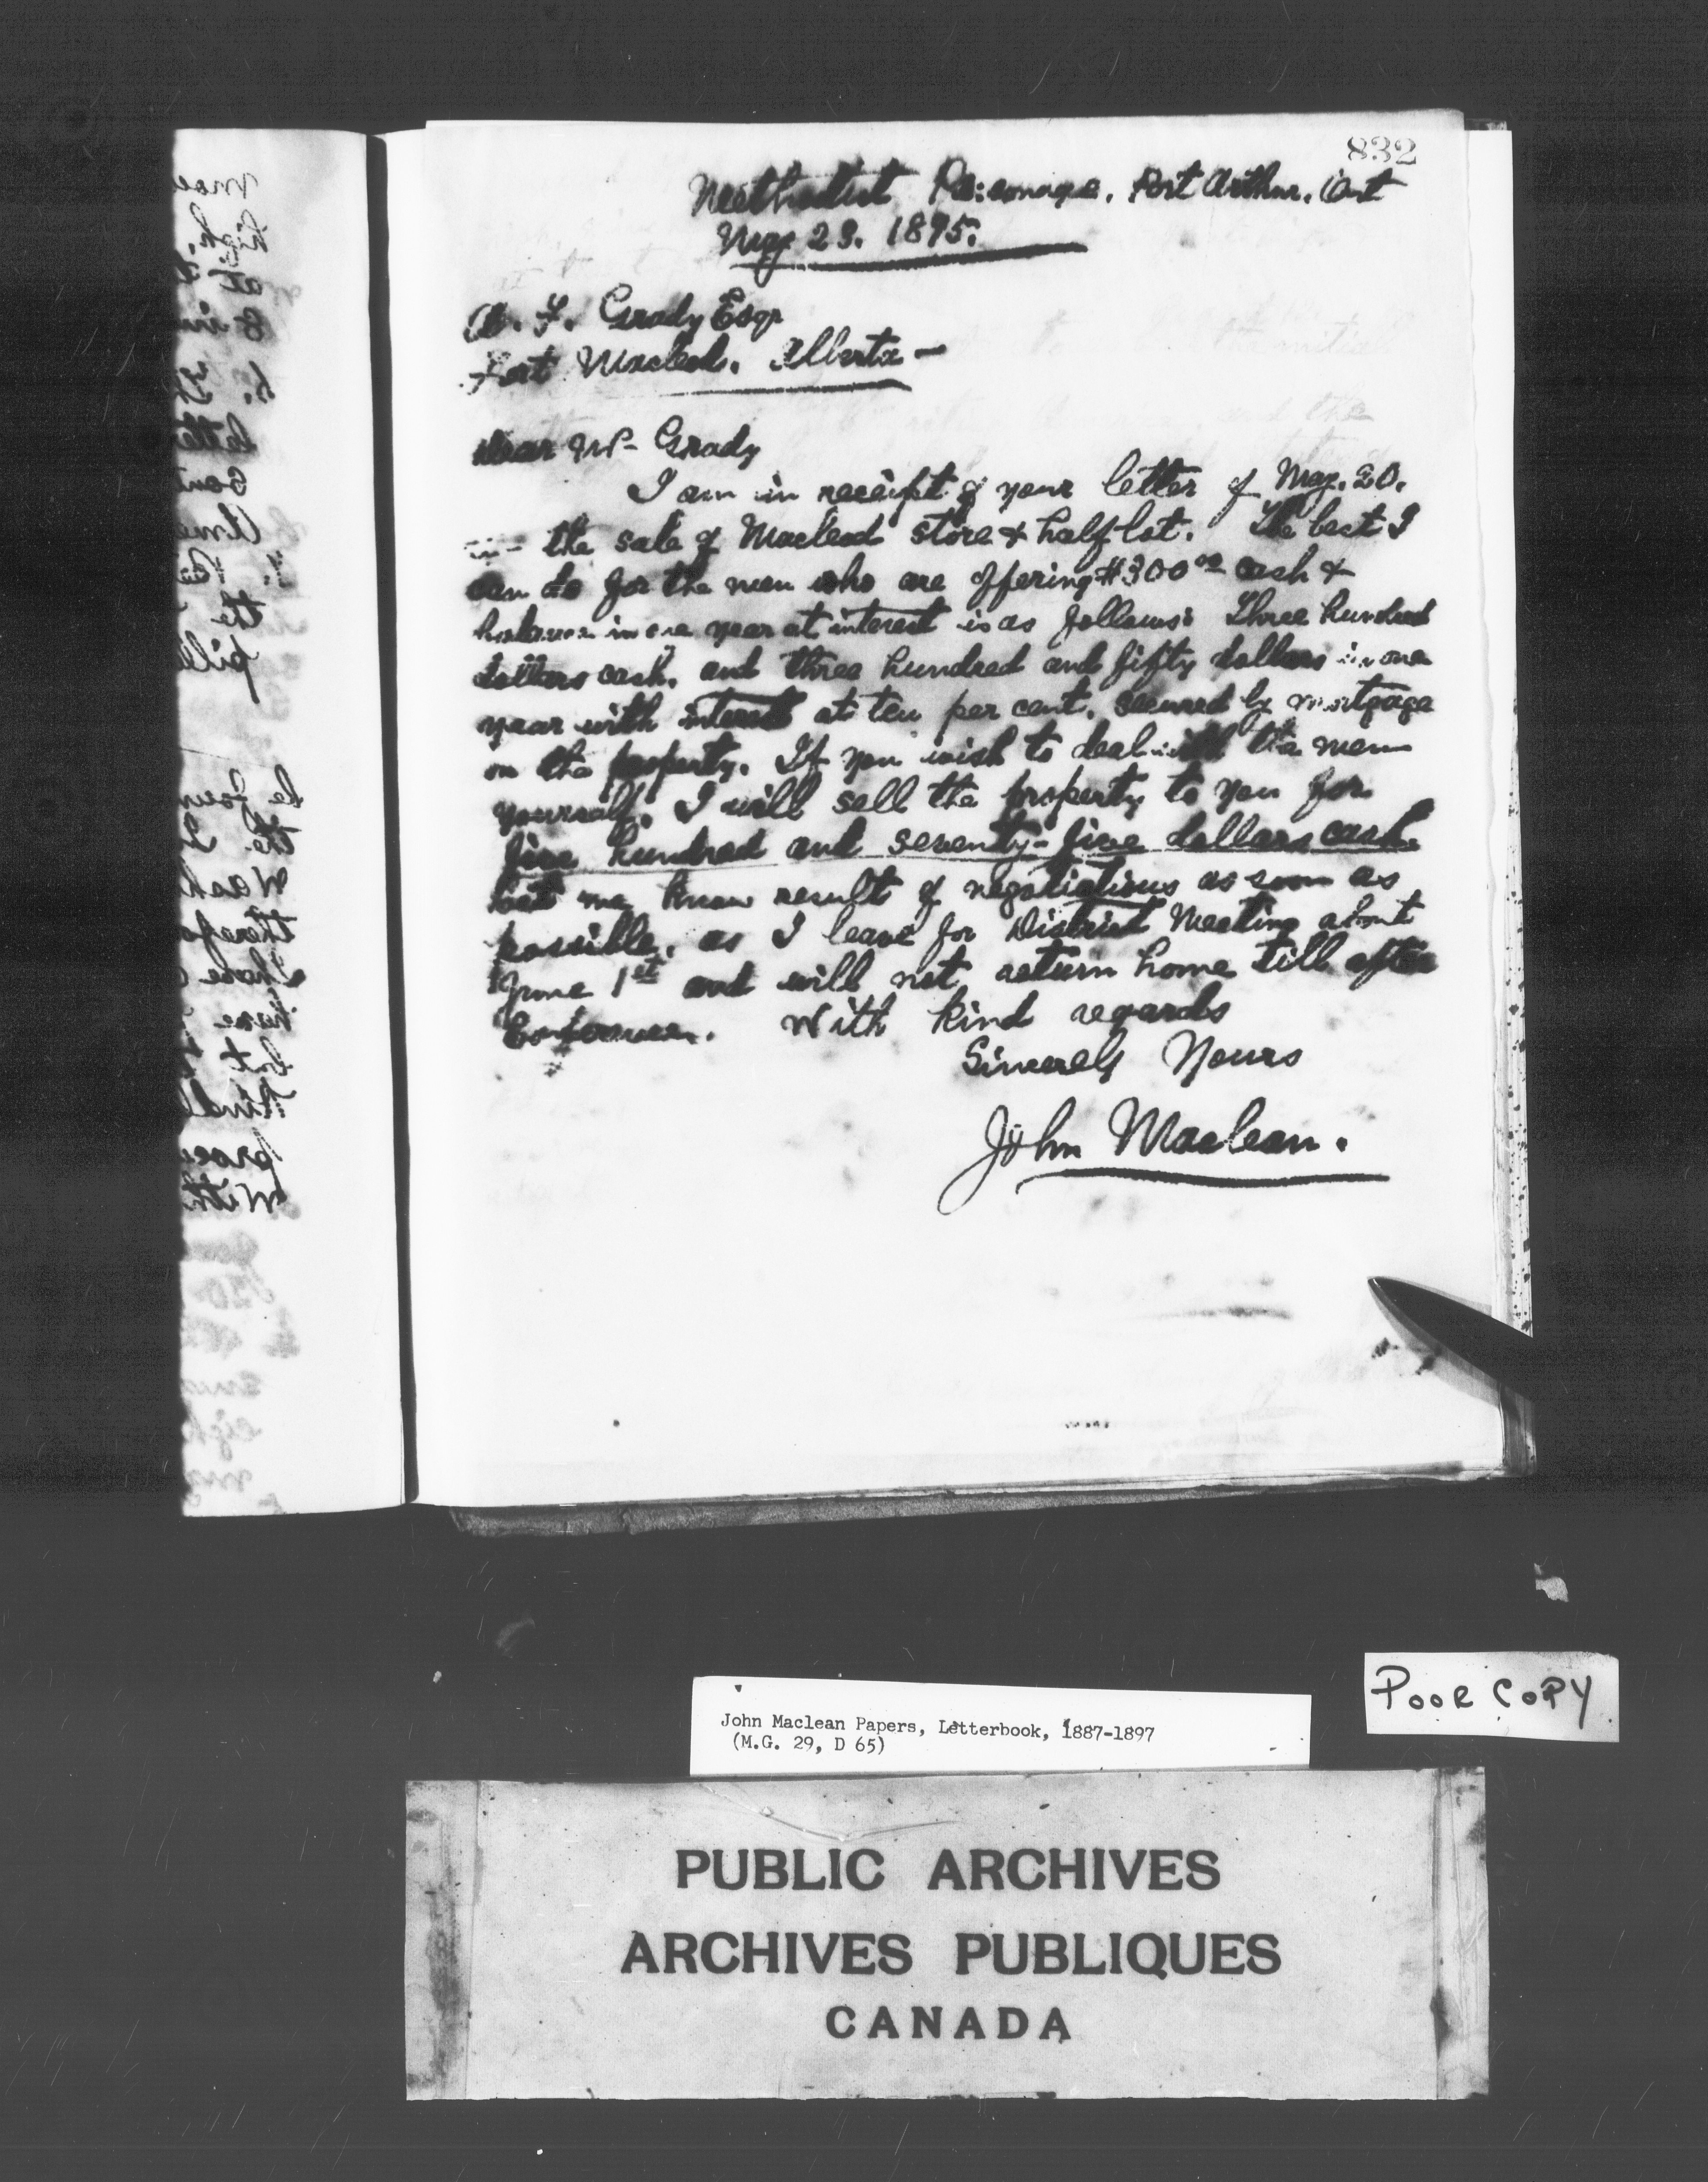 832
Methodist Parsonage. Port Arthur. Ont
May 23. 1895.
A. F. Grady Esqr
Fort Macleod. Alberta -
Dear Mr Grady
I am in receipt of your letter of May. 20.
the sale of Macleod store & half lot. The best I
can do for the men who are offering $300 00 cash &
balance in one year at interest is as follows: Three hundred
dollars cash, and three hundred and fifty dollars in one
year with interest at ten per cent. secured by mortgage
on the property. If you wish to deal with the men
yourself, I will sell the property to you for
five hundred and seventy-five dollars cash.
Let me know result of negotiations as soon as
possible, as I leave for District Meeting about
June 1st and will not return home till after
Conference. With kind regards
Sincerely Yours
John Maclean.
POOR COPY
John Maclean Papers, Letterbook, 1887-1897
(M.G. 29, D 65)
PUBLIC ARCHIVES
ARCHIVES PUBLIQUES
CANADA